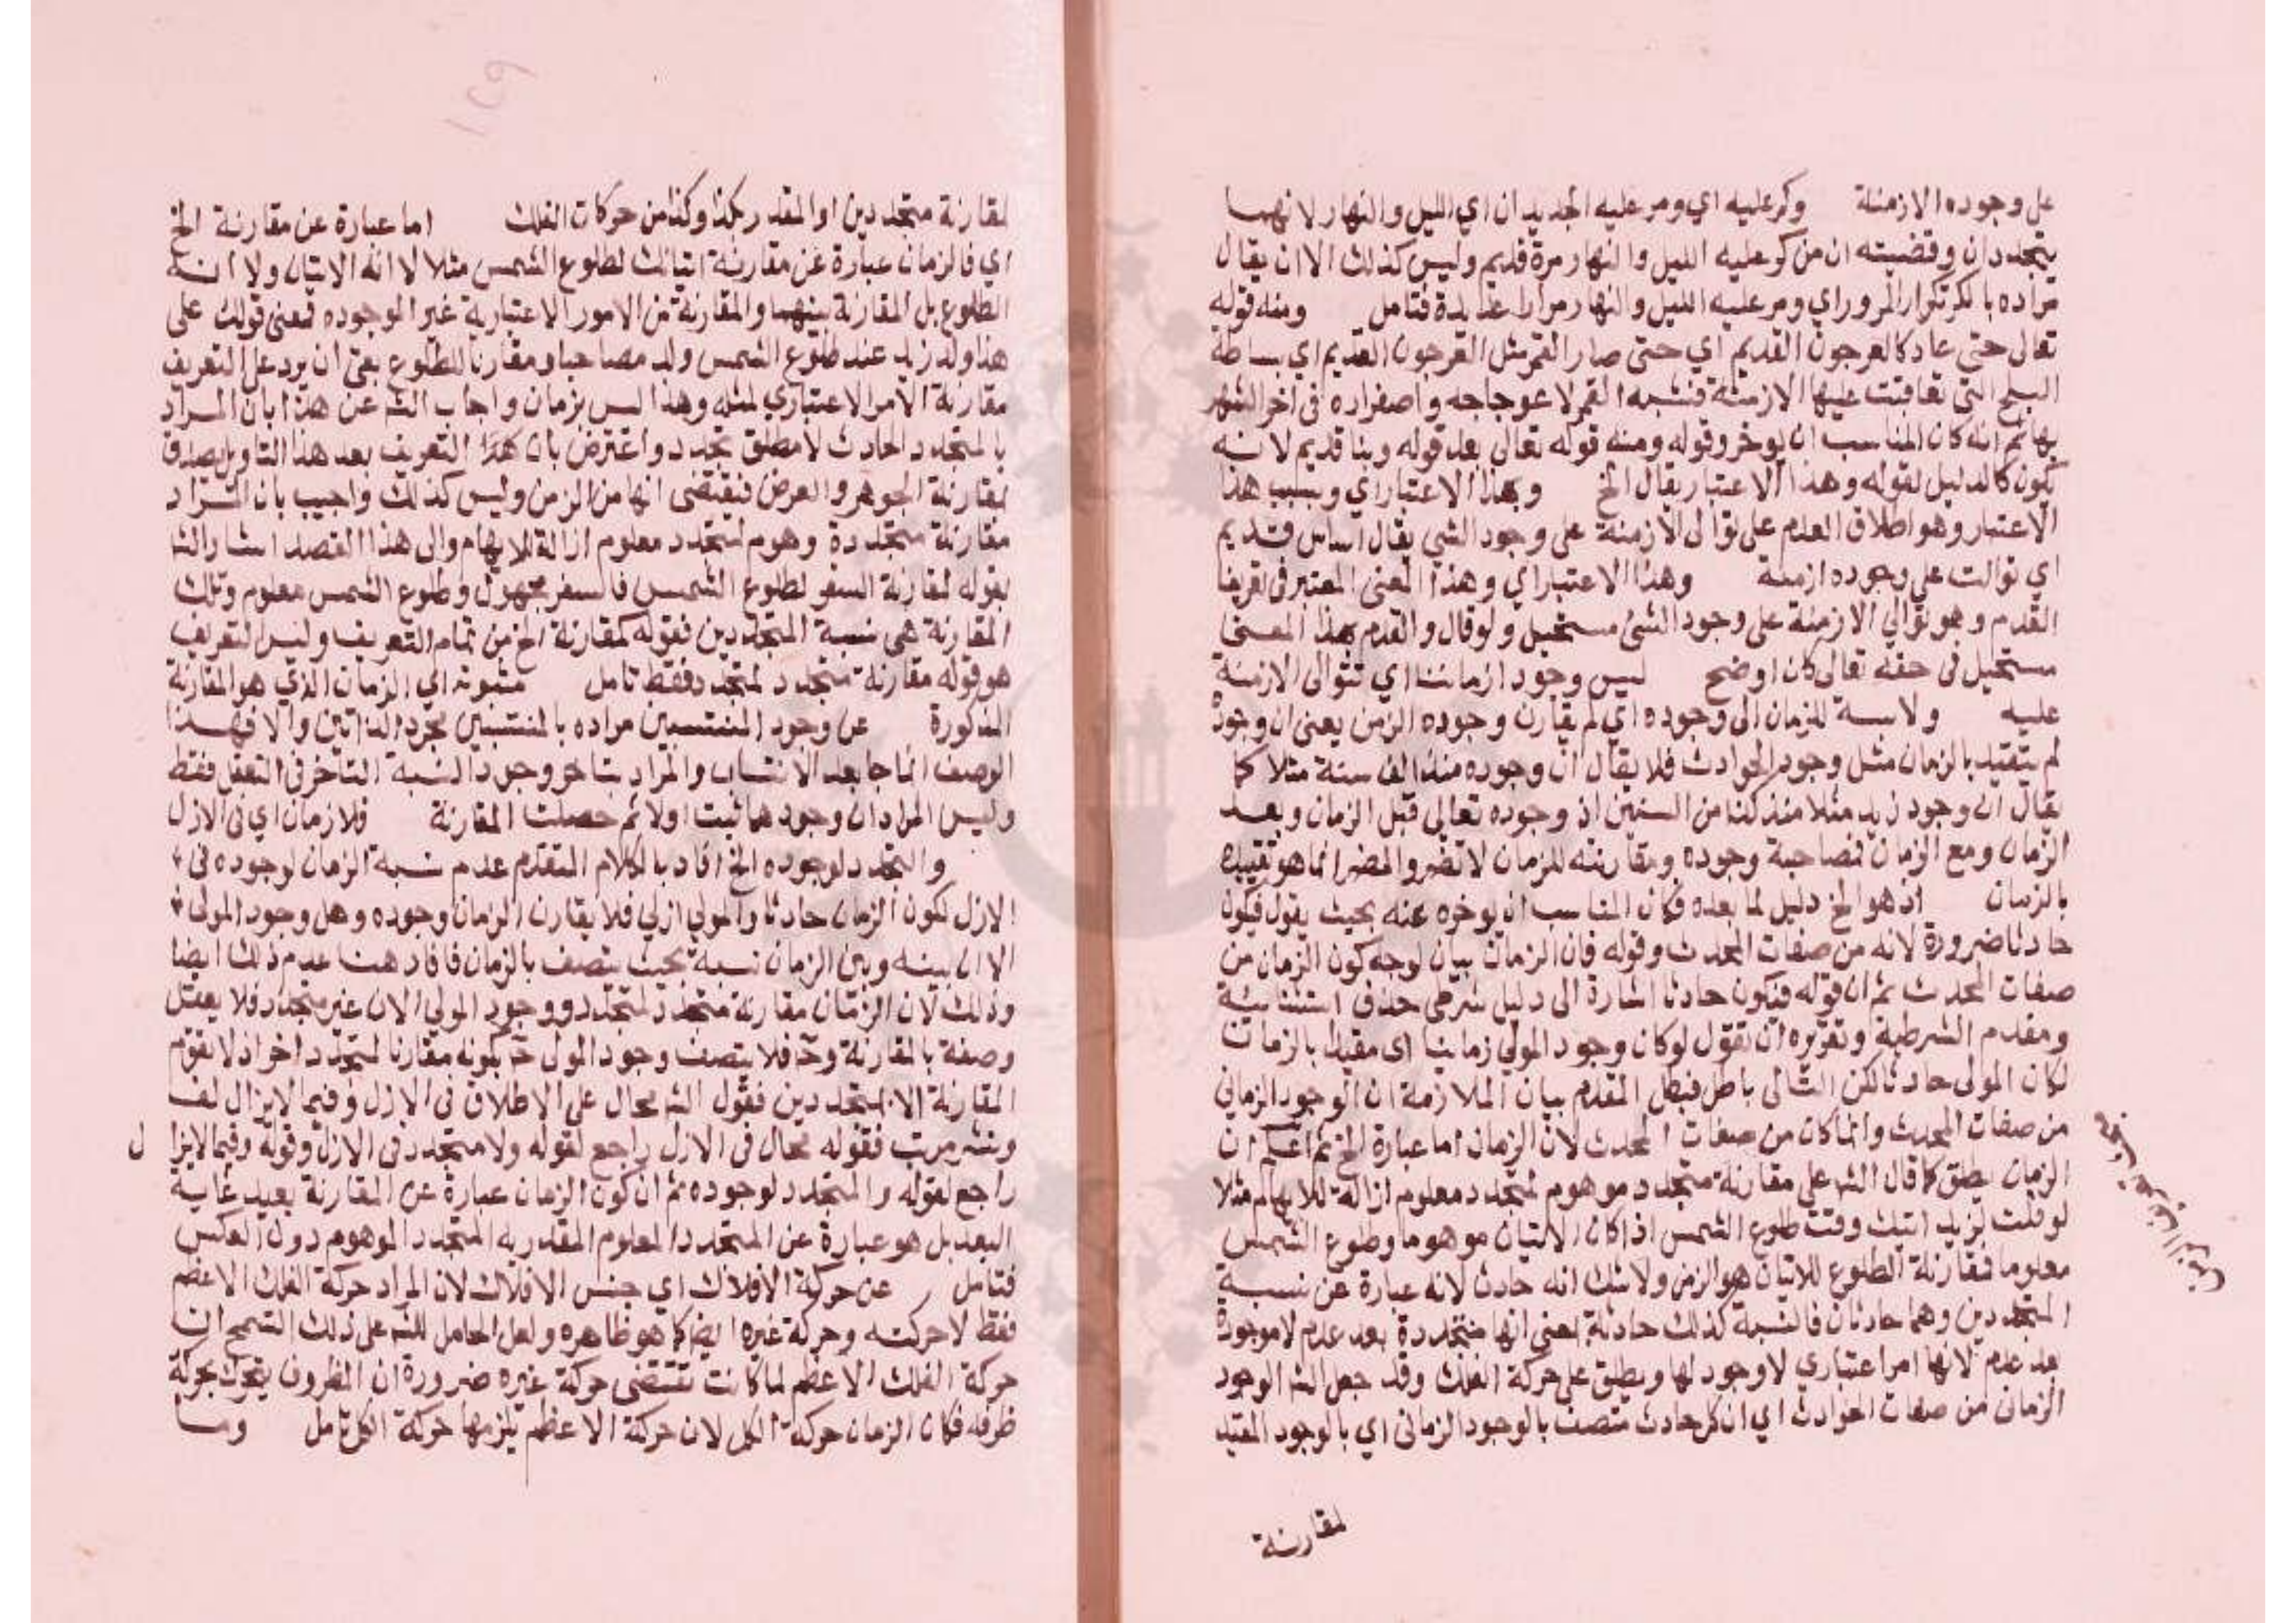 على وجوده الازمنة وكر عليه اي ومر عليه الجديدان اي الليل والنهار لانهما
يتجددان وقضيته ان من كر عليه الليل والنهار مرة قديم وليس كذلك الا ان يقال
مراده بالكر تكرار المرور اي ومر عليه الليل والنهار مرارا عديدة فتامل ومنه قوله
تعالى حتى عاد كالعرجون القديم اي حتى صار القمر مثل العرجون القديم اي بساطة
البلح التي تعاقبت عليها الازمنة فشبه القمر لاعوجاجه واصفراره في اخر الشهر
بها ثم انه كان المناسب ان يوخر وقوله ومنه قوله تعالى بعد قوله وبنا قديم لانه
يكون كالدليل لقوله وهذا الاعتبار يقال الخ وبهذا الاعتبار اي وبسبب هذا
الاعتبار وهو اطلاق القدم على توالى الازمنة على وجود الشي يقال اساس قديم
اي توالت على وجوده ازمنة وهذا الاعتبار اي وهذا المعنى المعتبر في تعريف
القدم وهو توالي الازمنة على وجود الشئ مستحيل ولو قال والقدم بهذا المعنى
مستحيل في حقه تعالى كان اوضح ليس وجود ازماننا اي تتوالى الازمنة
عليه ولا نسبة للزمان الى وجوده اي لم يقارن وجوده الزمن يعنى ان وجوده
لم يتقيد بالزمان مثل وجود الحوادث فلا يقال ان وجوده منذ الف سنة مثلا كما
يقال ان وجود زيد مثلا منذ كذا من السنين اذ وجوده تعالى قبل الزمان وبعد
الزمان ومع الزمان فمصاحبة وجوده ومقارنته للزمان لا تضر والمضر انما هو تقييده
بالزمان اذ هو الخ دليل لما بعده فكان المناسب ان يوخره عنه بحيث يقول فيكون
حادثا ضرورة لانه من صفات المحدث وقوله فان الزمان بيان لوجه كون الزمان من
صفات المحدث ثم ان قوله فيكون حادثا اشارة الى دليل شرطي حذف استثنائية
ومقدم الشرطية وتقريره ان تقول لو كان وجود المولي زمانيا اى مقيدا بالزمان
لكان المولى حادثا لكن التالى باطل فبطل المقدم بيان الملازمة ان الوجود الزماني
من صفات المحدث وانما كان من صفات المحدث لان الزمان اما عبارة الخ ثم اعلم ان
الزمان يطلق كما قال الشـ على مقارنة متجدد موهوم لمتجدد معلوم ازالة للابهام مثلا
لو قلت لزيد اتيك وقت طلوع الشمس اذا كان الاتيان موهوما وطلوع الشمس
معلوما فمقارنة الطلوع للاتيان هو الزمن ولا شك انه حادث لانه عبارة عن نسبة
المتجددين وهما حادثان فالنسبة كذلك حادثة بمعنى انها متجددة بعد عدم لا موجودة
بعد عدم لانها امر اعتباري لا وجود لها ويطلق على حركة الفلك وقد جعل الشـ الوجود
الزماني من صفات الحوادث اي ان كل حادث متصف بالوجود الزمانى اي بالوجود المقيد
لمقارنة
لمقارنة متجددين او المقدر بكذا وكذا من حركات الفلك اما عبارة عن مقارنة الخ
اي فالزمان عبارة عن مقارنة اتيانك لطلوع الشمس مثلا لا انه الاتيان ولا انه
الطلوع بل المقارنة بينهما والمقارنة من الامور الاعتبارية غير الموجوده فمعنى قولك على
هذا ولد زيد عند طلوع الشمس ولد مصاحبا ومقارنا للطلوع بقى ان يرد على التعريف
مقارنة الامر الاعتباري لمثله وهذا ليس بزمان واجاب الشـ عن هذا بان المراد
بالمتجدد الحادث لا مطلق تجدد واعترض بان هذا التعريف بعد هذا التاويل يصدق
بمقارنة الجوهر والعرض فيقتضى انها من الزمن وليس كذلك واجيب بان المراد
مقارنة متجددة وهوم لمتجدد معلوم ازالة للابهام والى هذا القصد اشار الشـ
بقوله لمقارنة السفر لطلوع الشمس فالسفر مجهول وطلوع الشمس معلوم وتلك
المقارنة هى نسبة المتجددين فقوله كمقارنة الخ من تمام التعريف وليس التعريف
هو قوله مقارنة متجدد لمتجدد فقط تامل مثبوته اي الزمان الذي هو المقارنة
المذكورة عن وجود المنتسبين مراده بالمنتسبين مجرد الذاتين والا فهذا
الوصف انما جا بعد الانتساب والمراد بتاخر وجود النسبة التاخر في التعقل فقط
وليس المراد ان وجودهما ثبت اولا ثم حصلت المقارنة فلا زمان اي فى الازل
والمتجدد لوجوده الخ افاد بالكلام المتقدم عدم نسبة الزمان لوجوده فى
الازل لكون الزمان حادثا والمولي ازلي فلا يقارن الزمان وجوده وهل وجود المولى
الان بينه وبين الزمان نسبة بحيث يتصف بالزمان فافاد هنا عدم ذلك ايضا
وذلك لان الزمان مقارنة متجدد لمتجدد ووجود المولي الان غير متجدد فلا يعقل
وصفه بالمقارنة وحـ فلا يتصف وجود المولى حـ بكونه مقارنا لمتجدد اخر اذ لا تقوم
المقارنة الا بمتجددين فقول الشـ محال على الاطلاق فى الازل وفيما لا يزال لف
ونشر مرتب فقوله محال فى الازل راجع لقوله ولا متجدد فى الازل وقوله وفيما لا يزا ل
راجع لقوله والمتجدد لوجوده ثم ان كون الزمان عبارة عن المقارنة بعيد غاية
البعد بل هو عبارة عن المتجدد المعلوم المقدر به المتجدد الموهوم دون العكس
فتامل عن حركة الافلاك اي جنس الافلاك لان المراد حركة الفلك الاعظم
فقط لا حركته وحركة غيره ايضا كما هو ظاهره ولعل الحامل للشـ على ذلك التسمح ان
حركة الفلك الاعظم لما كانت تقتضى حركة غيره ضرورة ان المظروف يتحرك بحركة
ظرفه فكان الزمان حركة الكل لان حركة الاعظم يلزمها حركة الكل تامل وما